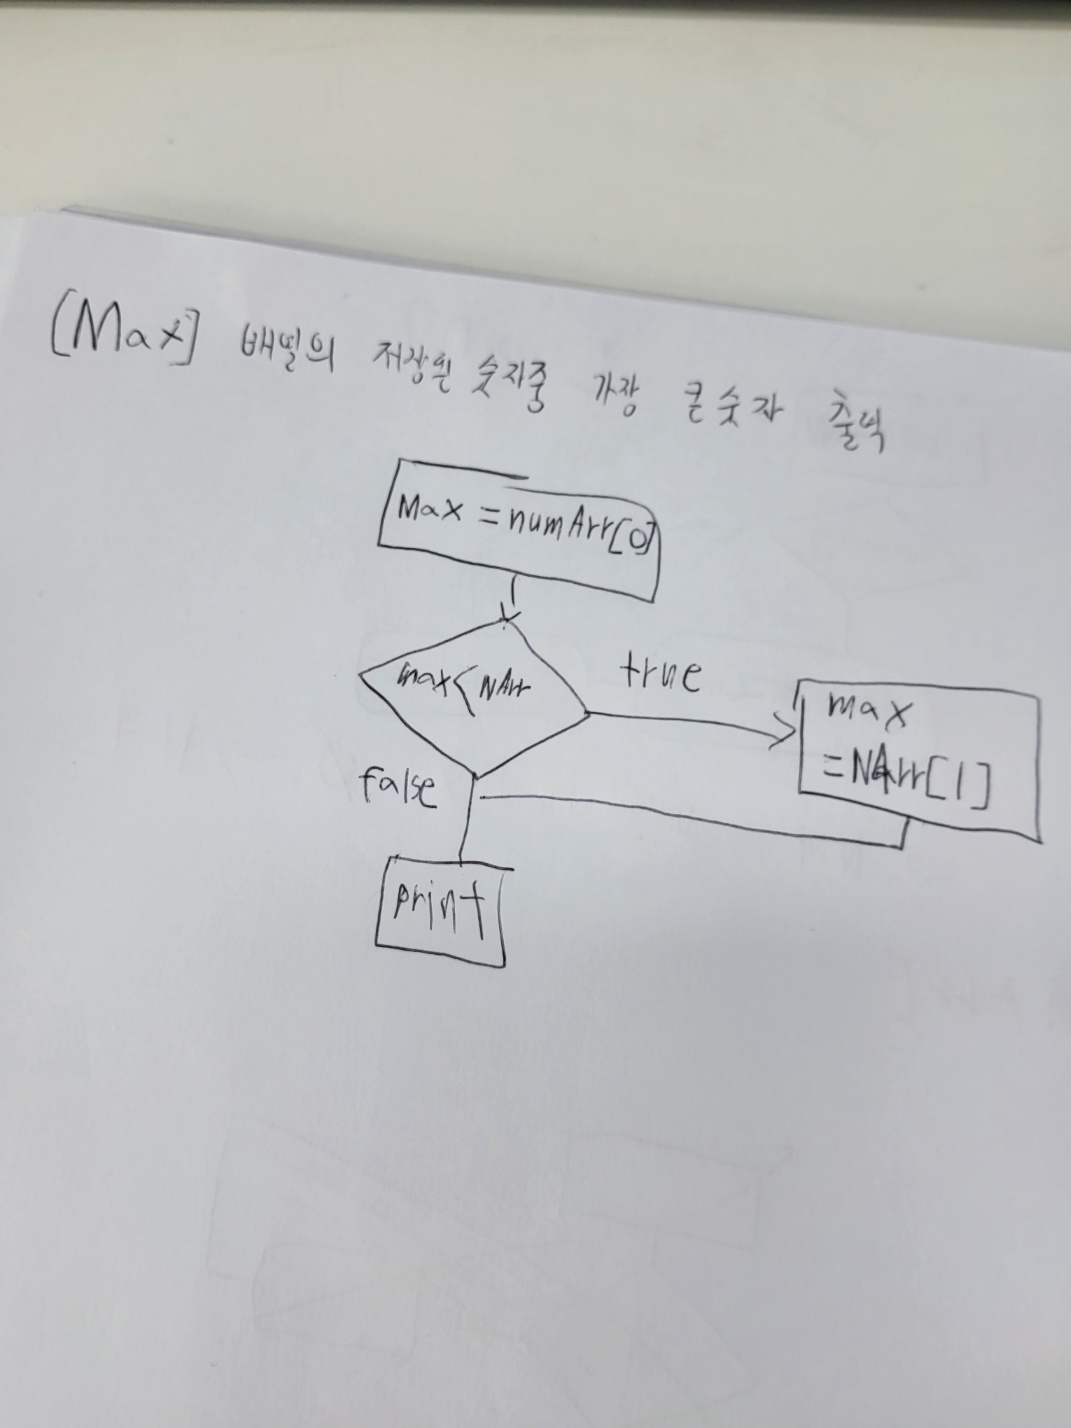 [Max] 배열의 저장된 숫자중 가장 큰숫자 출력
Max = numArr[0]
max < NArr
true
max
= NArr[1]
false
print